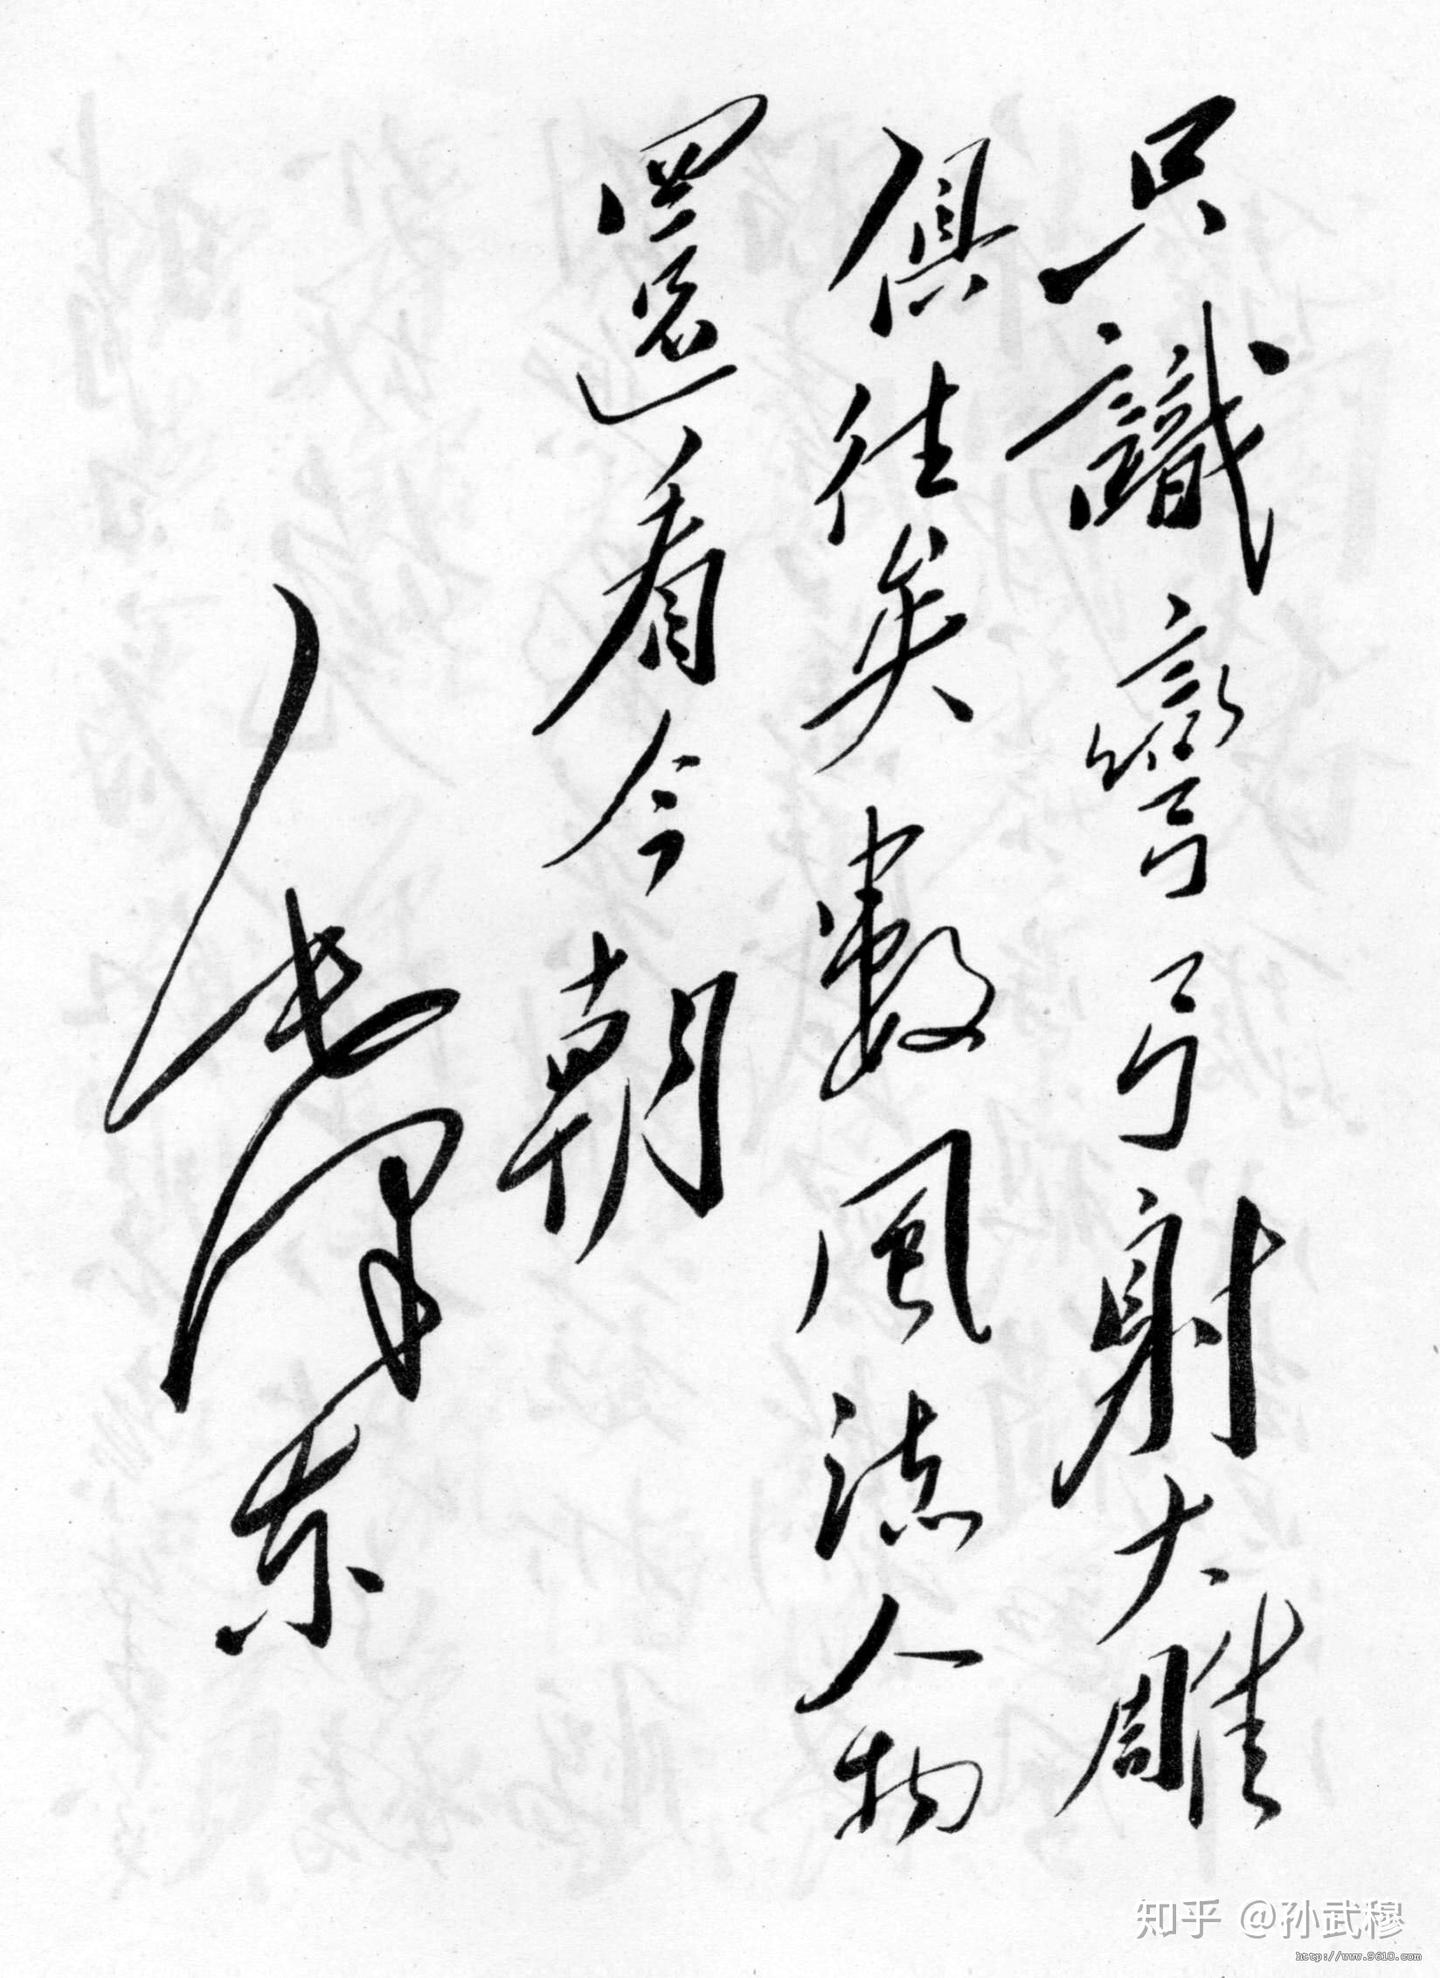 只識彎弓射大雕
俱往矣數風流人物
還看今朝
毛澤東
知乎 @孙武穆
http://www.9610.com